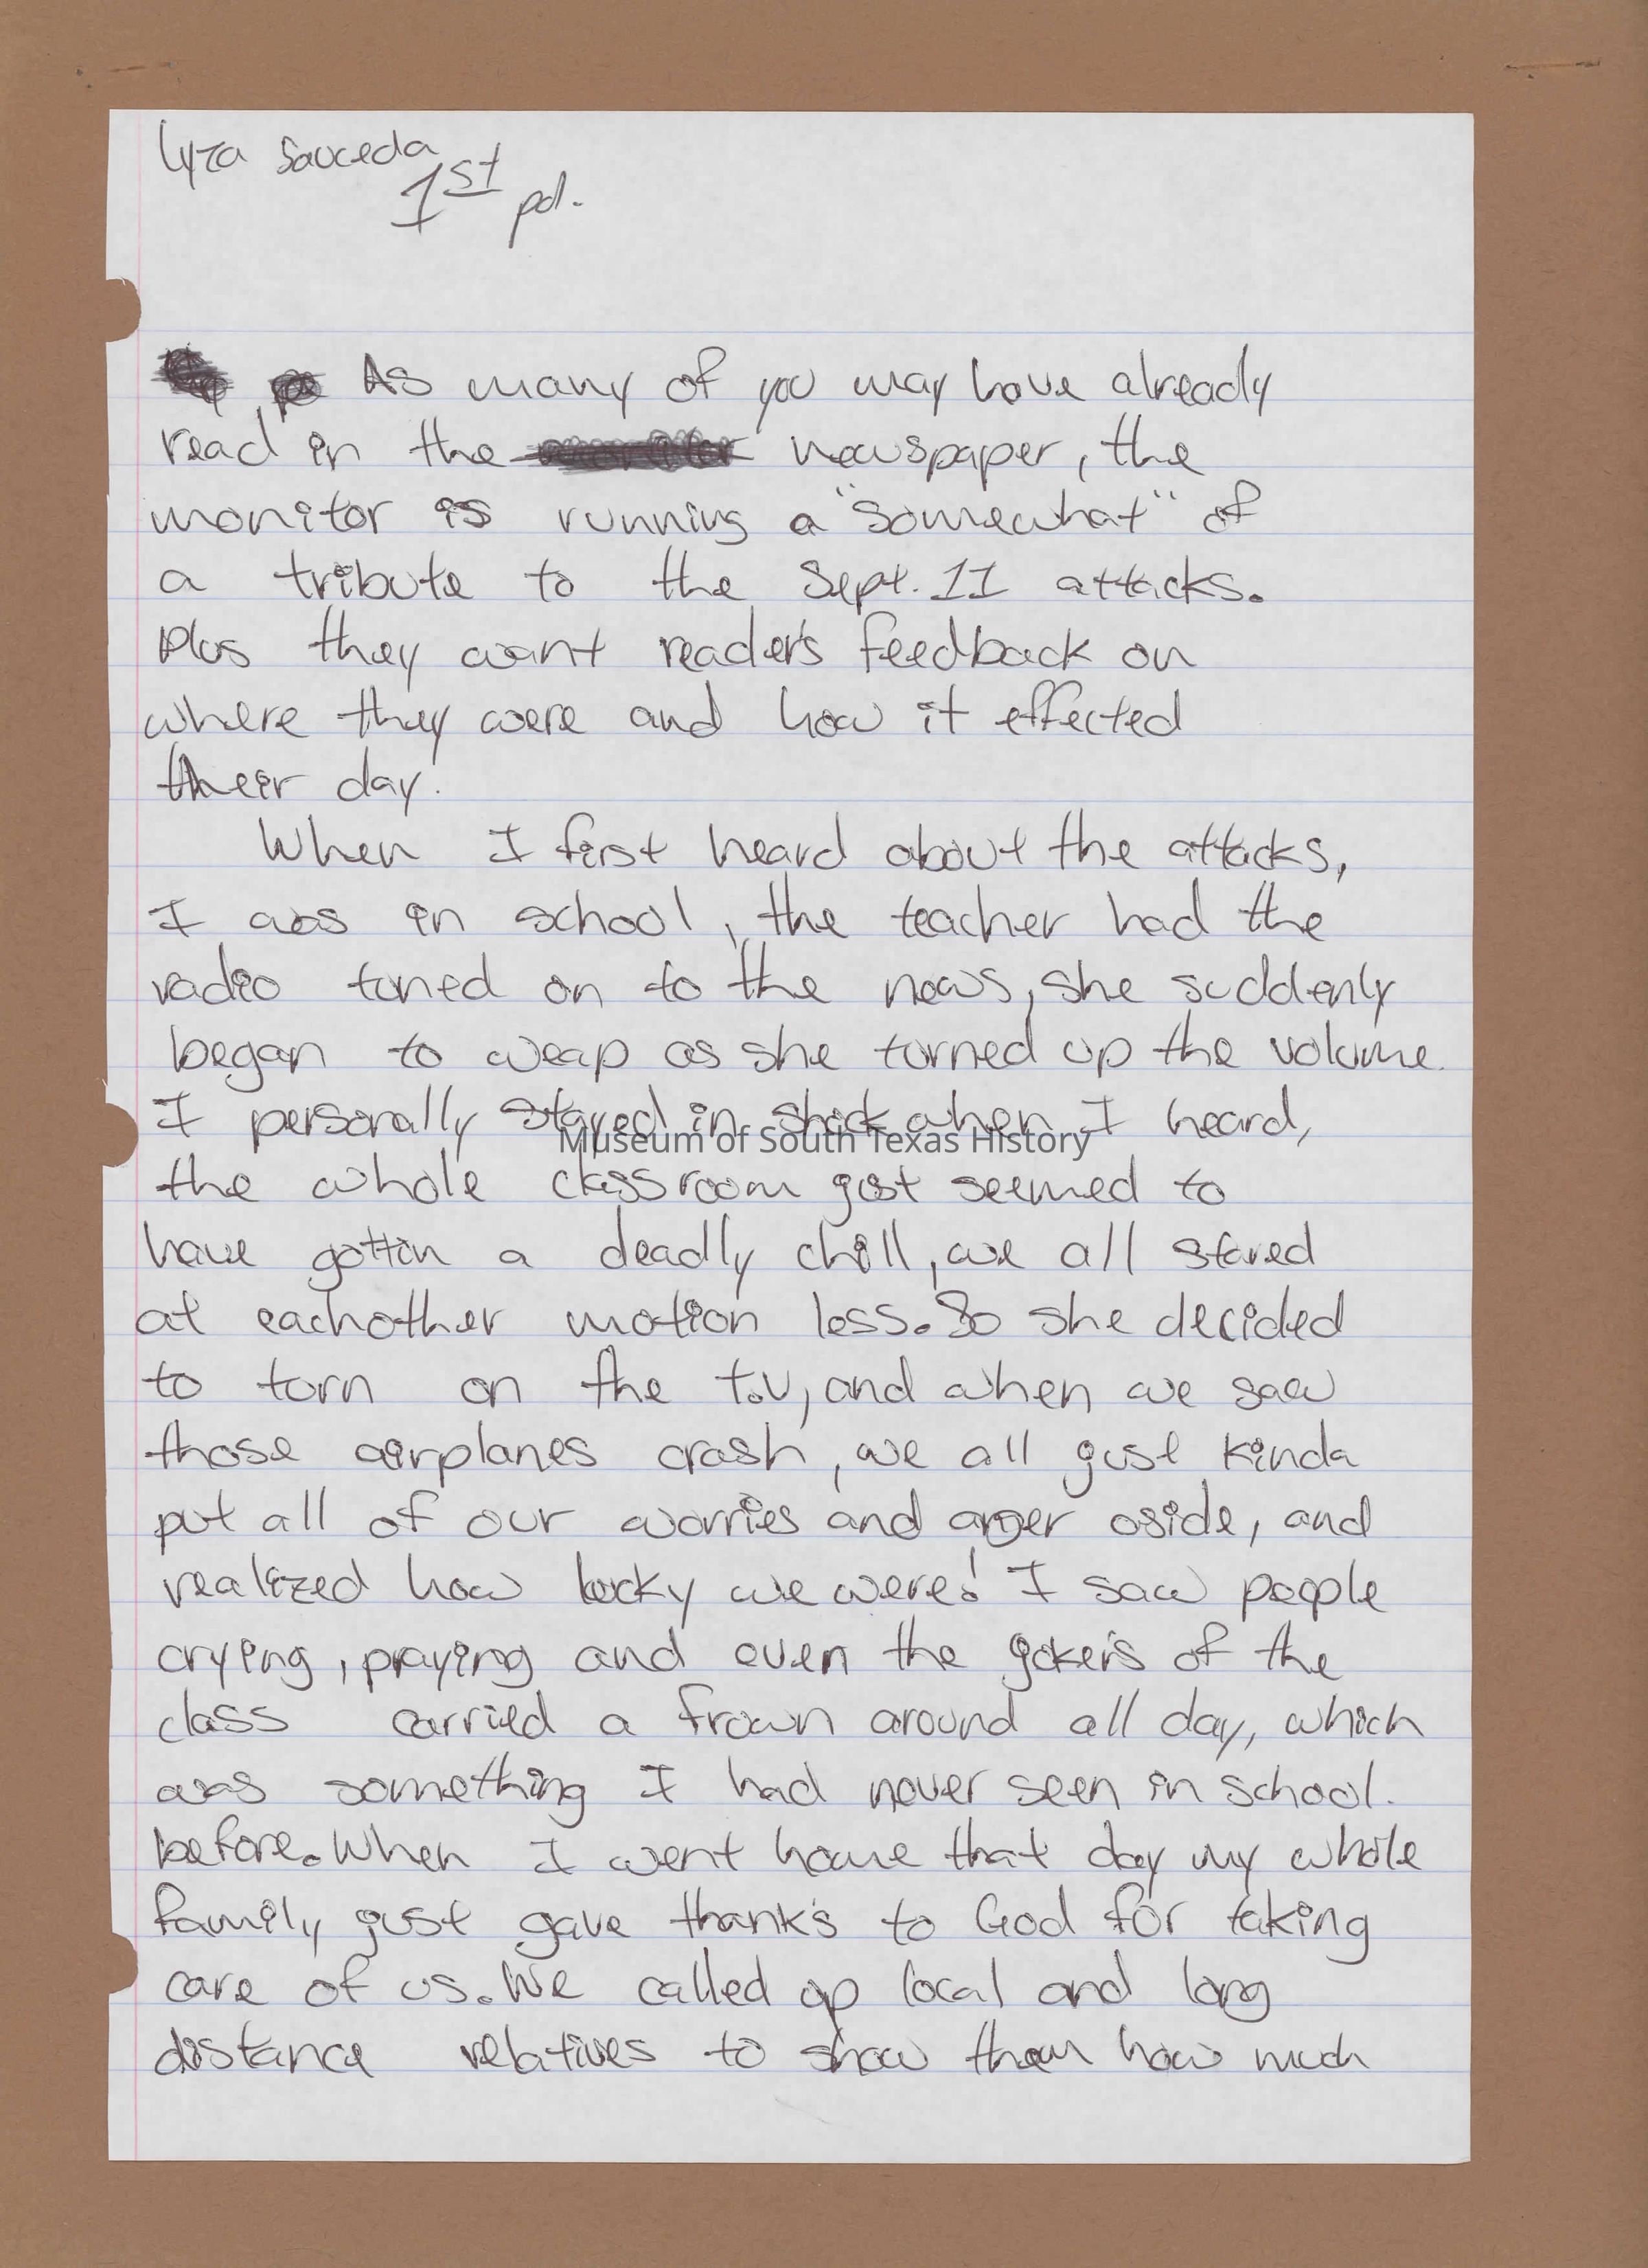 Lyza Sauceda
1st pd.
As many of you may have already
read in the newspaper, the
monitor is running a "somewhat" of
a tribute to the Sept. 11 attacks.
Plus they want reader's feedback on
where they were and how it effected
their day.
When I first heard about the attacks,
I was in school, the teacher had the
radio tuned on to the news, she suddenly
began to weap as she turned up the volume.
I personally stayed in shock when I heard,
Museum of South Texas History
the whole classroom just seemed to
have gottin a deadly chill, we all stared
at eachother motion less. So she decided
to turn on the t.v, and when we saw
those airplanes crash, we all just kinda
put all of our worries and anger aside, and
realized how lucky we were! I saw people
crying, praying and even the joker's of the
class carried a frown around all day, which
was something I had never seen in school.
before. When I went home that day my whole
family just gave thank's to God for taking
care of us. We called up local and long
distance relatives to show them how much